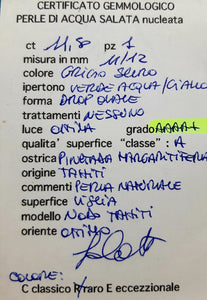 CERTIFICATO GEMMOLOGICO
PERLE DI ACQUA SALATA nucleata
ct 11,58 pz 1
misura in mm 11/12
colore GRIGIO SCURO
ipertono VERDE ACQUA/GIALLO
forma DROP OVALE
trattamenti NESSUNO
luce OTTIMA grado AAAA+
qualita' superfice "classe": A
ostrica PINCTADA MARGARITIFERA
origine TAHITI
commenti PERLA NATURALE
superfice LISCIA
modello NODO TAHITI
oriente OTTIMO
COLORE:
C classico R raro E eccezzionale